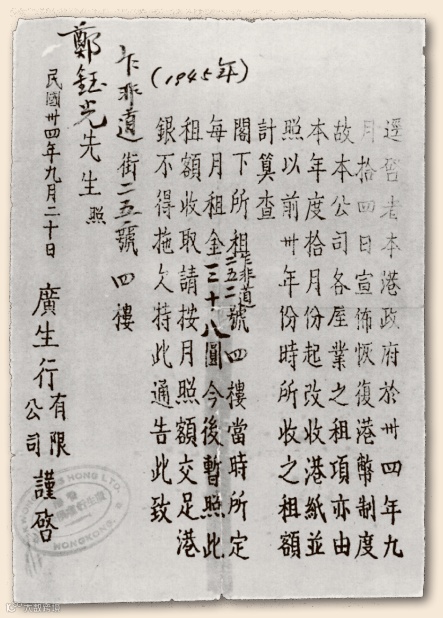 逕啓者本港政府於卅四年九
月拾四日宣佈恢復港幣制度
故本公司各屋業之租項亦由
本年度拾月份起改收港紙並
照以前卅年份時所收之租額
計算查
閣下所租乍菲道二五二號四樓當時所定
每月租金三十八圓今後暫照此
租額收取請按月照額交足港
銀不得拖欠特此通告此致
(1945年)
乍菲道街二五二號四樓
鄭鈺光先生 照
民國卅四年九月二十日
廣生行有限公司 謹啓
HONG LTD.
HONGKONG.